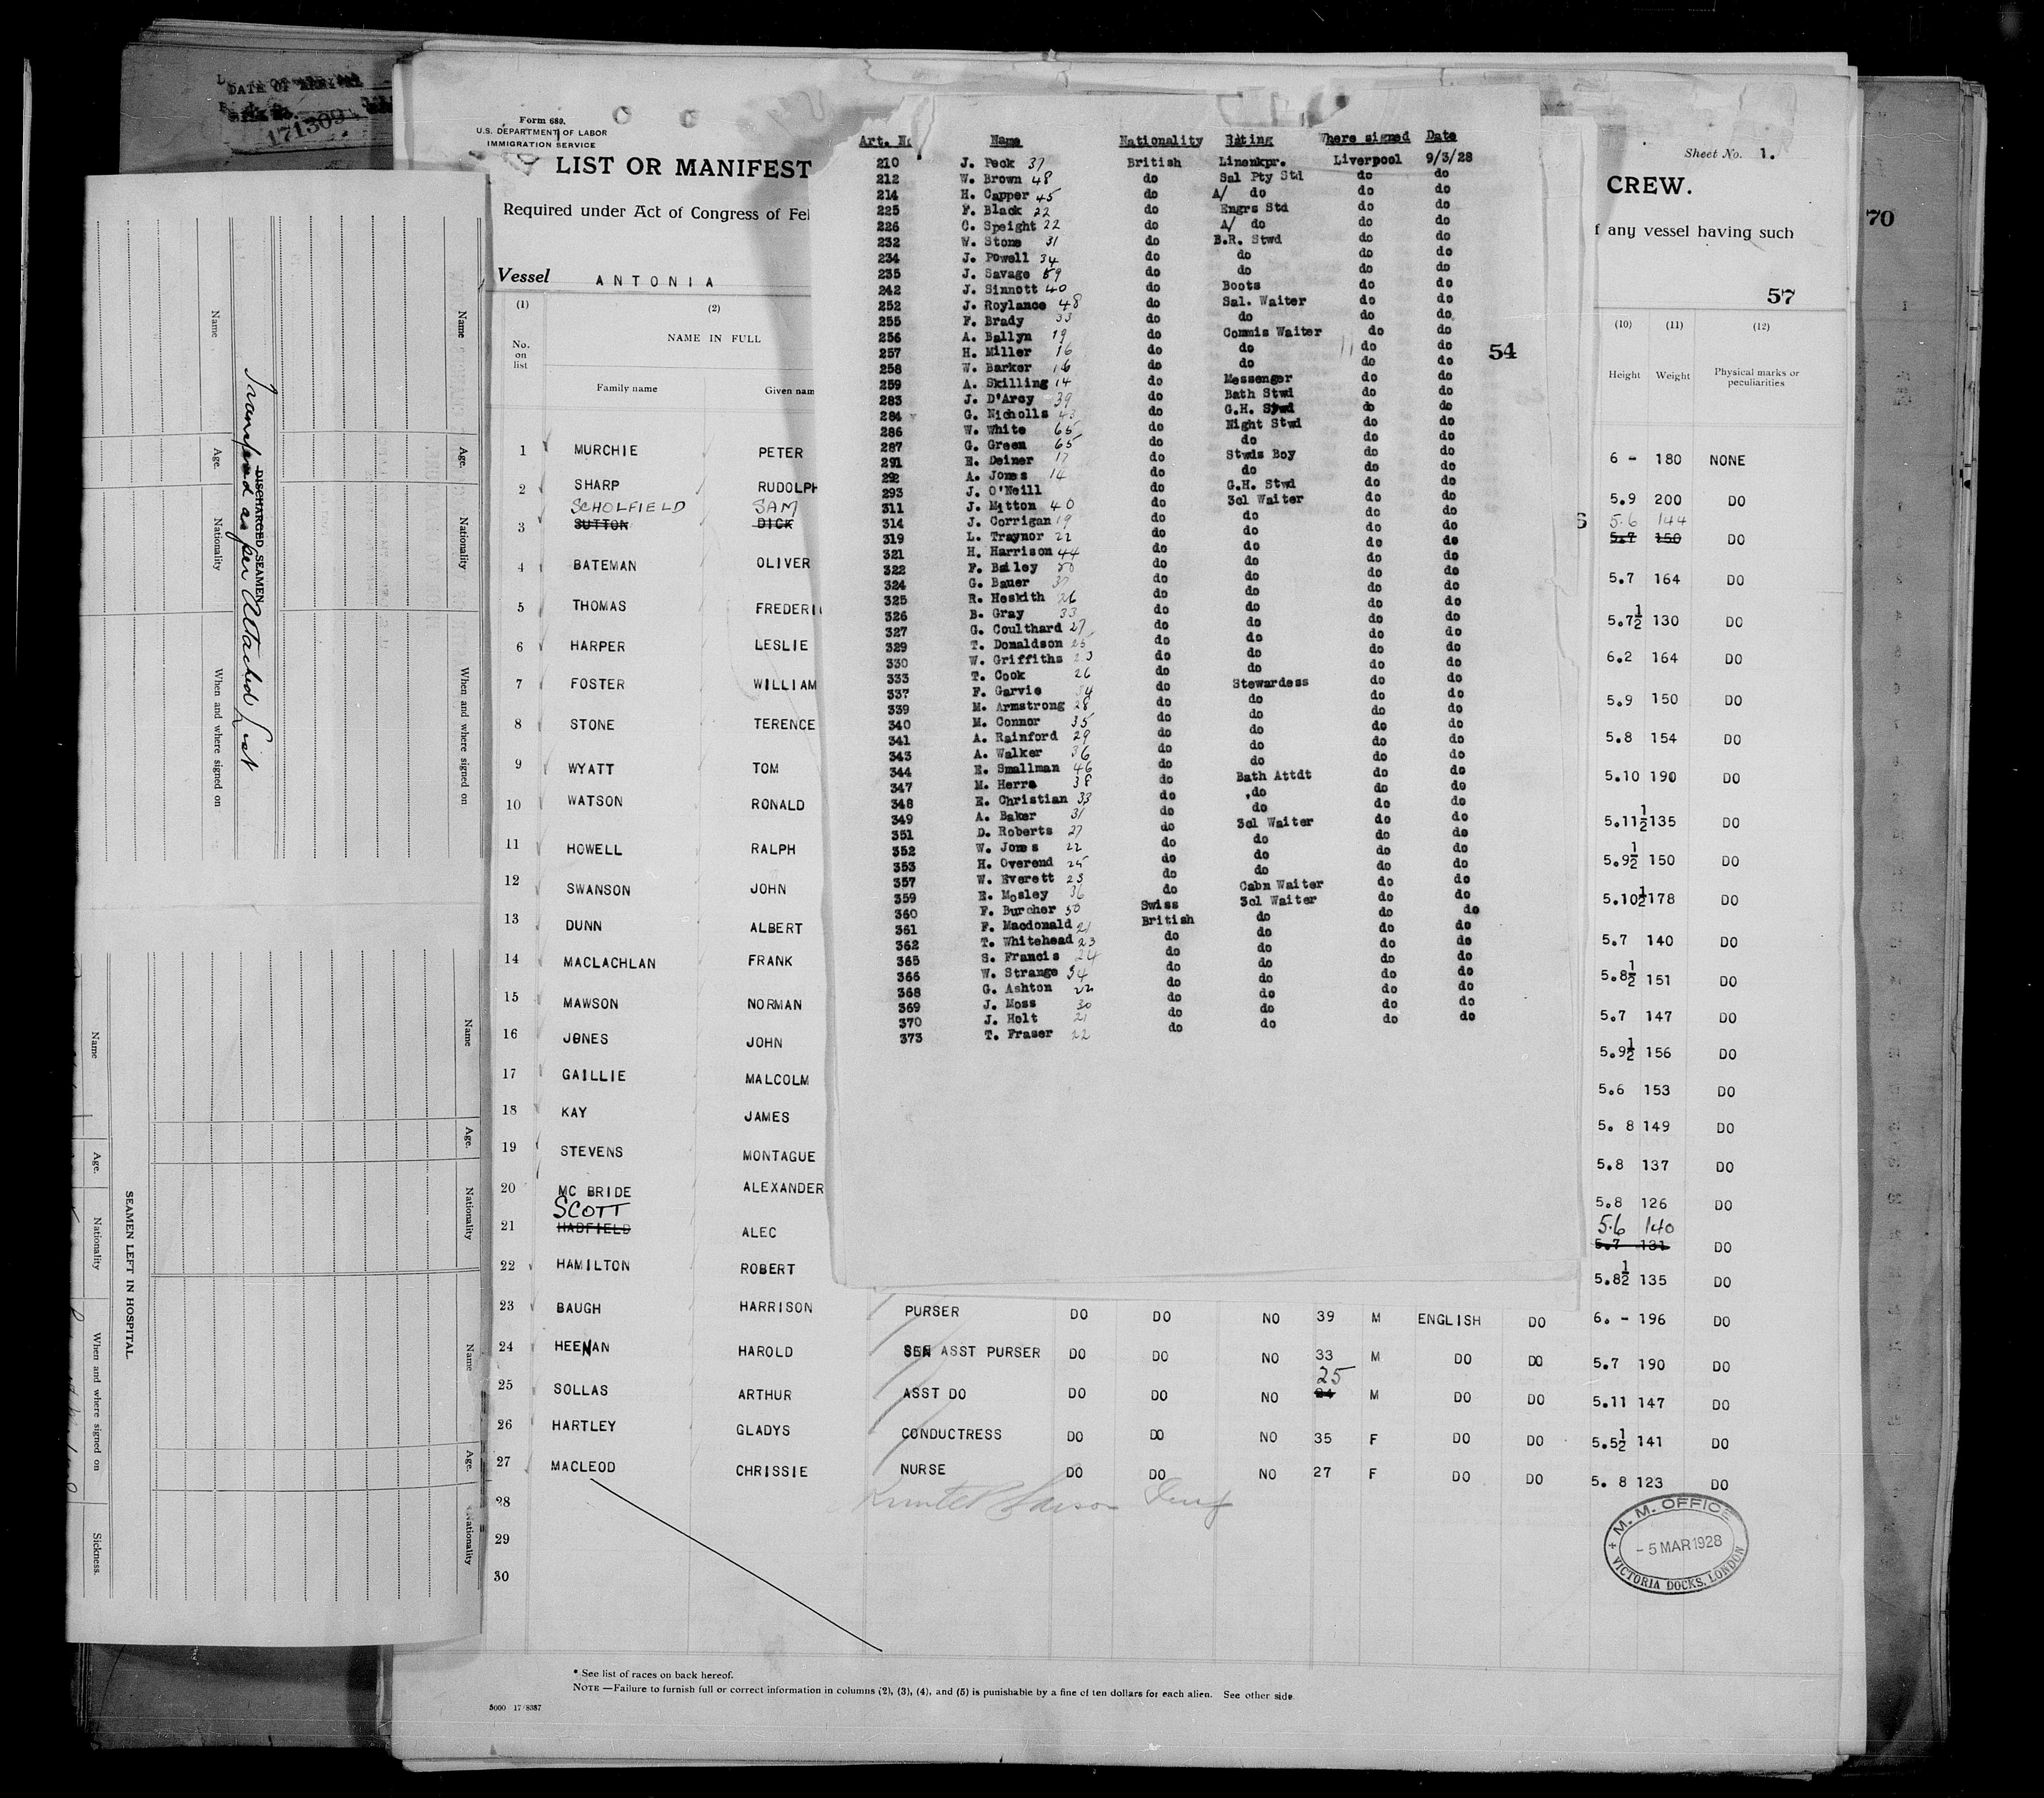 DATE OF ARRIVAL
171309
Form 689.
U.S. DEPARTMENT OF LABOR
IMMIGRATION SERVICE
LIST OR MANIFEST
Required under Act of Congress of Fe
Vessel ANTONIA
(1) (2)
No. on list NAME IN FULL
Family name Given nam
1 MURCHIE PETER
2 SHARP RUDOLPH
SCHOLFIELD SAM
3 SUTTON DICK
4 BATEMAN OLIVER
5 THOMAS FREDERI
6 HARPER LESLIE
7 FOSTER WILLIAM
8 STONE TERENCE
9 WYATT TOM
10 WATSON RONALD
11 HOWELL RALPH
12 SWANSON JOHN
13 DUNN ALBERT
14 MACLACHLAN FRANK
15 MAWSON NORMAN
16 JONES JOHN
17 GAILLIE MALCOLM
18 KAY JAMES
19 STEVENS MONTAGUE
20 MC BRIDE ALEXANDER
SCOTT
21 HADFIELD ALEC
22 HAMILTON ROBERT
23 BAUGH HARRISON PURSER DO DO NO 39 M ENGLISH DO 6. - 196 DO
24 HEENAN HAROLD SEN ASST PURSER DO DO NO 33 M DO DO 5.7 190 DO
25
25 SOLLAS ARTHUR ASST DO DO DO NO 24 M DO DO 5.11 147 DO
26 HARTLEY GLADYS CONDUCTRESS DO DO NO 35 F DO DO 5.5½ 141 DO
27 MACLEOD CHRISSIE NURSE DO DO NO 27 F DO DO 5. 8 123 DO
28
29
30
* See list of races on back hereof.
NOTE —Failure to furnish full or correct information in columns (2), (3), (4), and (5) is punishable by a fine of ten dollars for each alien. See other side
5000 17/8387
Art. N Name Nationality Rating Where signed Date
210 J. Peck 37 British Linenkpr. Liverpool 9/3/28
212 W. Brown 48 do Sal Pty Std do do
214 H. Capper 45 do A/ do do do
225 F. Black 22 do Engrs Std do do
226 C. Speight 22 do A/ do do do
232 W. Stone 31 do B.R. Stwd do do
234 J. Powell 34 do do do do
235 J. Savage 59 do do do do
242 J. Sinnott 40 do Boots do do
252 J. Roylance 48 do Sal. Waiter do do
255 F. Brady 33 do do do do
256 A. Ballyn 19 do Commis Waiter do do
257 H. Miller 16 do do do do
258 W. Barker 16 do do do do
259 A. Skilling 14 do Messenger do do
283 J. D'Arcy 39 do Bath Stwd do do
284 G. Nicholls 43 do G.H. Stwd do do
286 W. White 65 do Night Stwd do do
287 G. Green 65 do do do do
291 E. Deiner 17 do Stwds Boy do do
292 A. Jones 14 do do do do
293 J. O'Neill do G.H. Stwd do do
311 J. Mitton 40 do 3cl Waiter do do
314 J. Corrigan 19 do do do do
319 L. Traynor 22 do do do do
321 H. Harrison 44 do do do do
322 F. Bailey 50 do do do do
324 G. Bauer 37 do do do do
325 R. Heskith 26 do do do do
326 B. Gray 33 do do do do
327 G. Coulthard 27 do do do do
329 T. Donaldson 25 do do do do
330 W. Griffiths 23 do do do do
333 T. Cook 26 do do do do
337 F. Garvie 34 do Stewardess do do
339 M. Armstrong 28 do do do do
340 M. Connor 35 do do do do
341 A. Rainford 29 do do do do
343 A. Walker 36 do do do do
344 E. Smallman 46 do do do do
347 M. Herra 38 do Bath Attdt do do
348 E. Christian 33 do do do do
349 A. Baker 31 do do do do
351 D. Roberts 27 do 3cl Waiter do do
352 W. Jones 22 do do do do
353 H. Overend 25 do do do do
357 W. Everett 23 do do do do
359 E. Mosley 36 do Cabn Waiter do do
360 F. Burcher 50 Swiss 3cl Waiter do do
361 F. Macdonald 21 British do do do
362 T. Whitehead 23 do do do do
365 S. Francis 24 do do do do
366 W. Strange 34 do do do do
368 G. Ashton 22 do do do do
369 J. Moss 30 do do do do
370 J. Holt 21 do do do do
373 T. Fraser 22 do do do do
54
Sheet No. 1.
CREW.
f any vessel having such
57
70
(10) (11) (12)
Height Weight Physical marks or peculiarities
6 - 180 NONE
5.9 200 DO
5.6 144
5.7 150 DO
5.7 164 DO
5.7½ 130 DO
6.2 164 DO
5.9 150 DO
5.8 154 DO
5.10 190 DO
5.11½ 135 DO
5.9½ 150 DO
5.10½ 178 DO
5.7 140 DO
5.8½ 151 DO
5.7 147 DO
5.9½ 156 DO
5.6 153 DO
5. 8 149 DO
5.8 137 DO
5.8 126 DO
5.6 140
5.7 131 DO
5.8½ 135 DO
M. M. OFFICE
- 5 MAR 1928
VICTORIA DOCKS, LONDON
Name Age. Nationality When and where signed on
DISCHARGED SEAMEN
Transferred as per Attached List
Name Age. Nationality When and where signed on
Name Age. Nationality Name Age. Nationality
SEAMEN LEFT IN HOSPITAL
Name Age. Nationality When and where signed on Sickness.